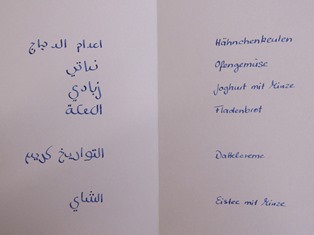 اعدام الدجاج
نباتي
زبادي
الكعكة
التواريخ كريم
الشاي
Hähnchenkeulen
Ofengemüse
Joghurt mit Minze
Fladenbrot
Dattelcreme
Eistee mit Minze